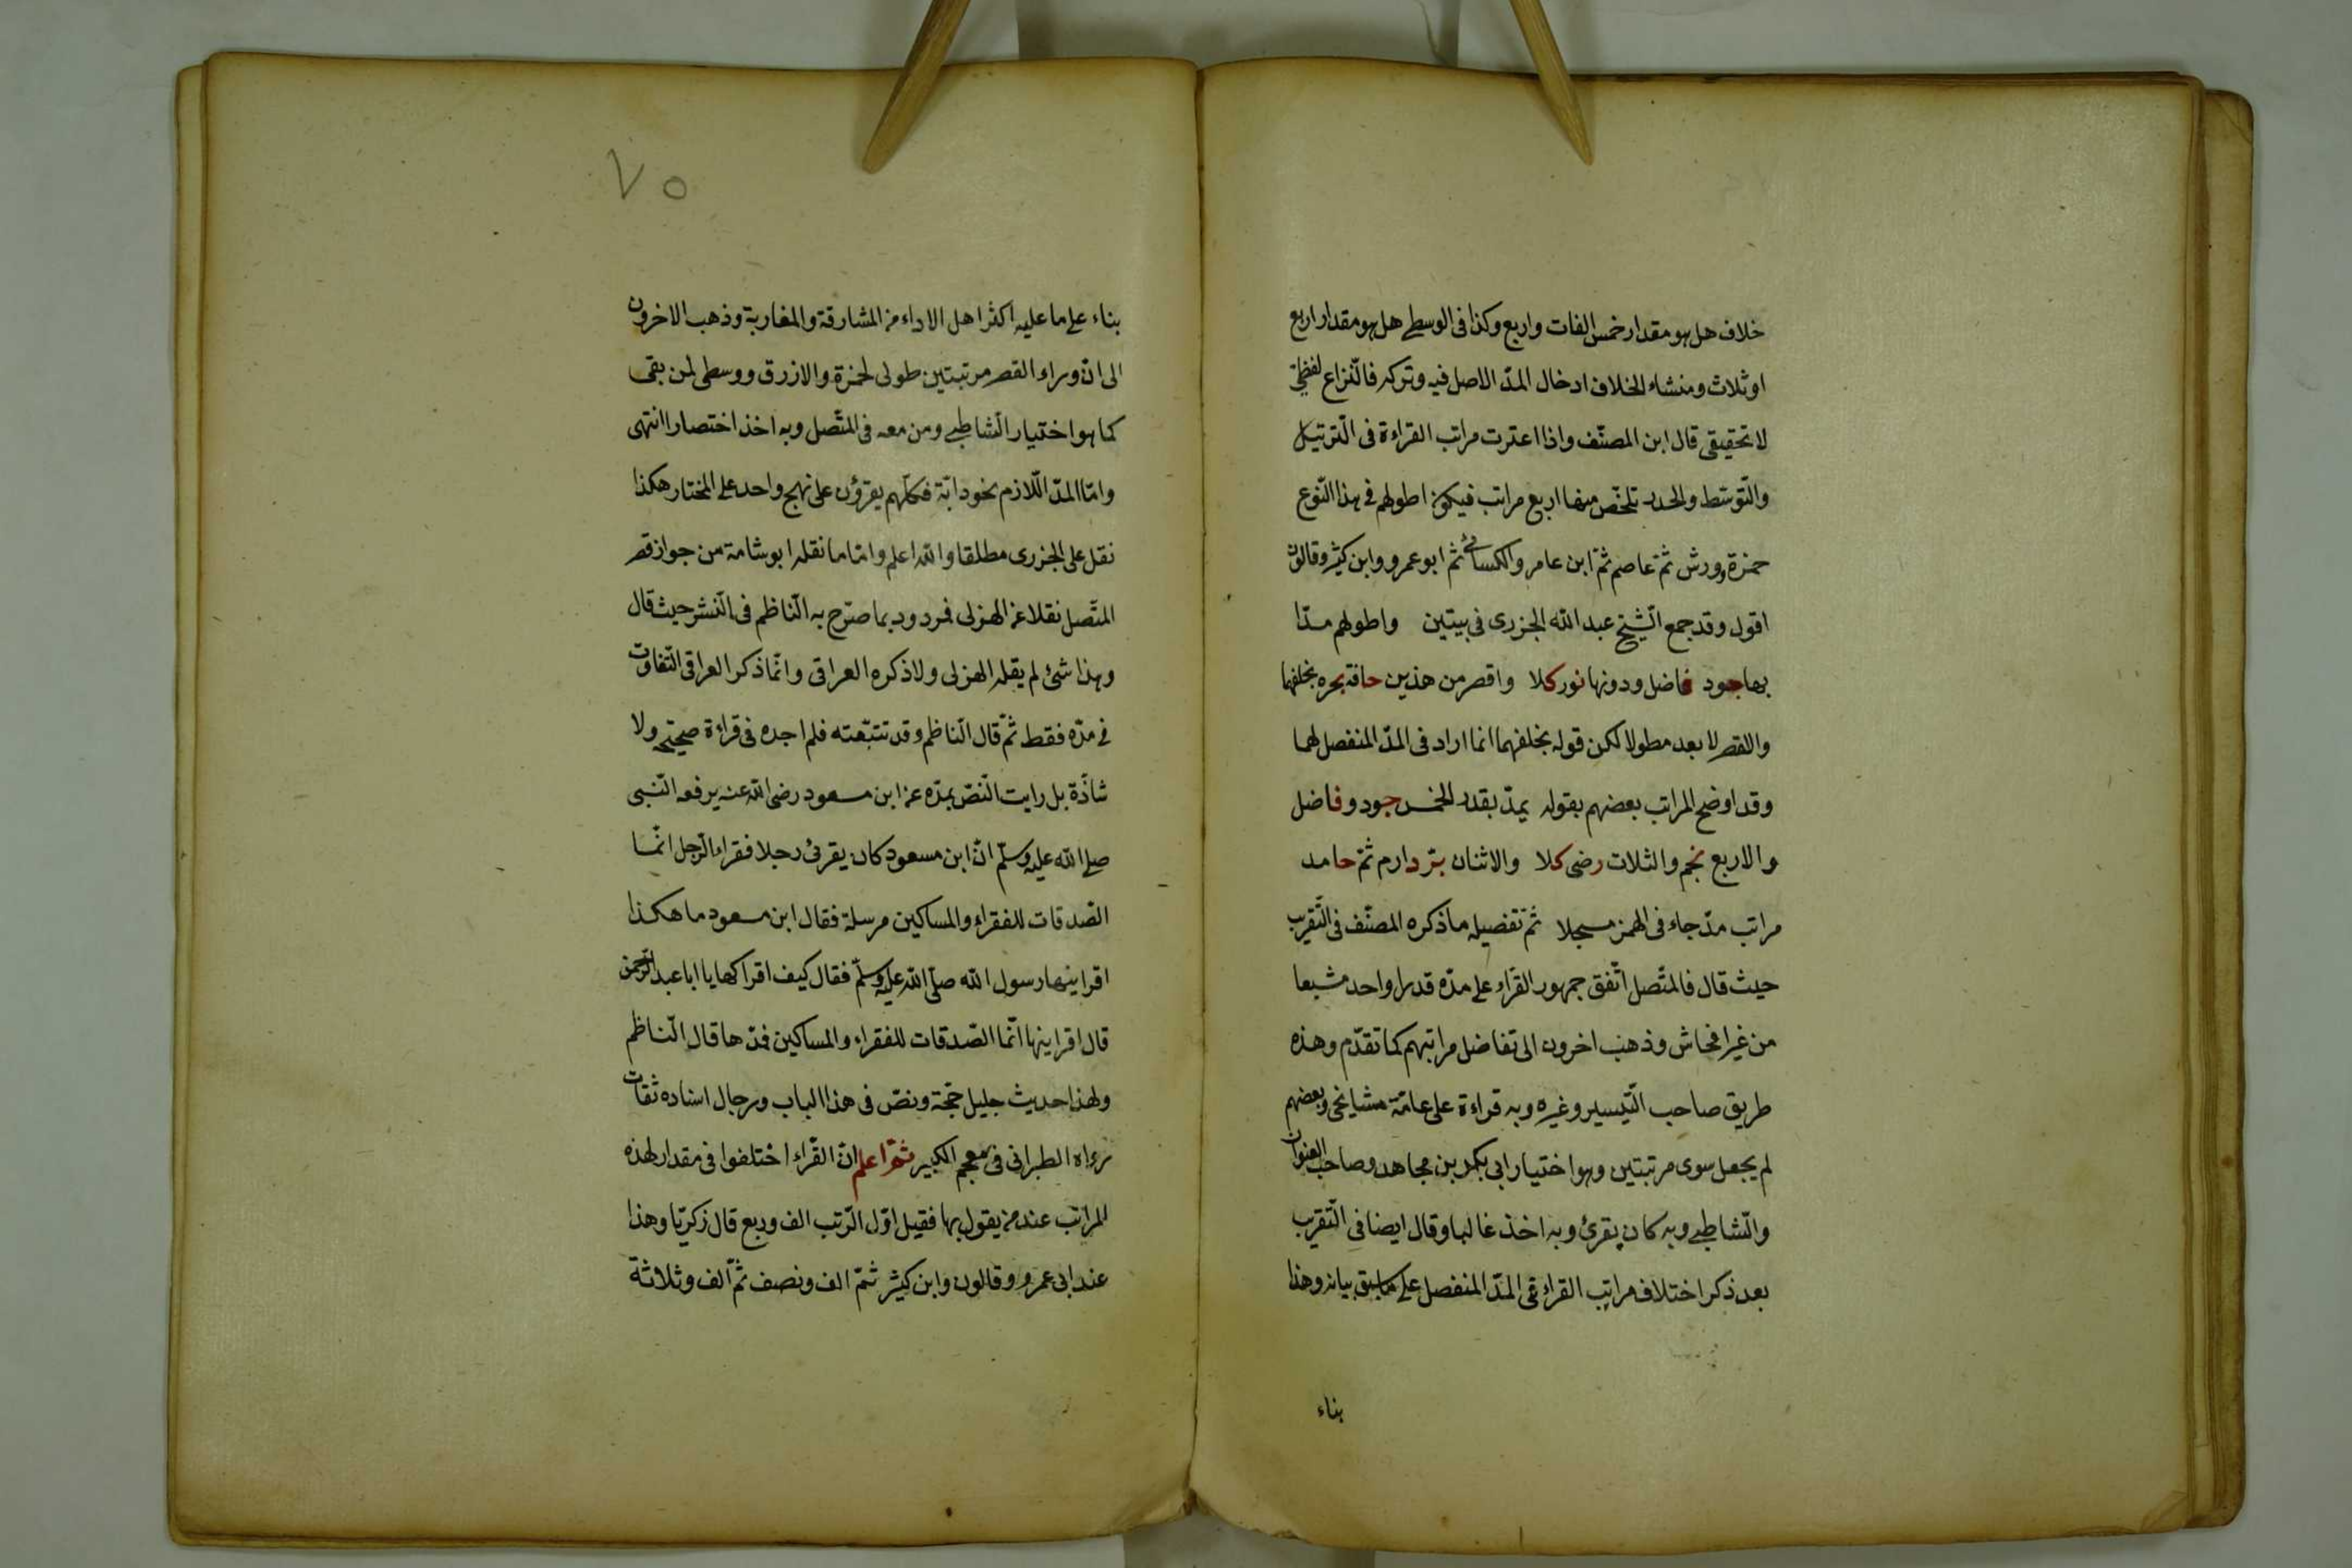 خلاف هل هو مقدار خمس الفات واربع وكذا فى الوسطى هل هو مقدار اربع
اوثلاث ومنشاء الخلاف ادخال المدّ الاصل فيه وتركه فالنّزاع لفظىّ
لا تحقيقى قال ابن المصنّف واذا اعتبرت مراتب القراءة فى التّرتيل
والتّوسّط والحدر تلخّص منها اربع مراتب فيكون اطولهم فى هذا النّوع
حمزة وورش ثمّ عاصم ثمّ ابن عامر والكسائى ثمّ ابو عمرو وابن كثير وقالون
اقول وقد جمع الشّيخ عبد الله الجزرى فى بيتين واطولهم مدّا
بها جود فاضل ودونها نور كلا واقصر من هذين حافة بحره بخلفهما
والقصر لا بعد مطولا لكن قوله بخلفهما انما اراد فى المدّ المنفصل لهما
وقد اوضح المراتب بعضهم بقوله يمدّ بقدر الخمس جود وفاضل
والاربع نجم والثلاث رضى كلا والاثنان بتر دارم ثمّ حامد
مراتب مدّ جاء فى الهمز مسجلا ثمّ تفصيله ما ذكره المصنّف فى التّقريب
حيث قال فالمتّصل اتّفق جمهور القرّاء على مدّه قدرا واحد مشبعا
من غير افحاش وذهب اخرون الى تفاضل مراتبهم كما تقدّم وهذه
طريق صاحب التّيسير وغيره وبه قراءة على عامّة مشايخى وبعضهم
لم يجعل سوى مرتبتين وهو اختيار ابى بكر بن مجاهد وصاحب العنوان
والشّاطبى وبه كان يقرئ وبه اخذ غالبا وقال ايضا فى التّقريب
بعد ذكر اختلاف مراتب القراء فى المدّ المنفصل على ما سبق بيانه وهذا
بناء
٧٥
بناء على ما عليه اكثر اهل الاداء من المشارقة والمغاربة وذهب الاخرون
الى انّ وراء القصر مرتبتين طولى لحمزة والازرق ووسطى لمن بقى
كما هو اختيار الشّاطبى ومن معه فى المتّصل وبه اخذ اختصارا انتهى
وامّا المدّ اللّازم نحو دابّة فكلّهم يقرؤن على نهج واحد على المختار هكذا
نقل على الجزرى مطلقا والله اعلم وامّا ما نقله ابو شامة من جواز قصر
المتّصل نقلا عن الهزلى فمردود بما صرّح به النّاظم فى النّشر حيث قال
وهذا شئ لم يقله الهزلى ولا ذكره العراقى وانّما ذكر العراقى التّفاوت
فى مدّه فقط ثمّ قال النّاظم وقد تتبّعته فلم اجده فى قراءة صحيحة ولا
شاذّة بل رايت النّص بمدّه عن ابن مسعود رضى الله عنه يرفعه النّبى
صلى الله عليه وسلّم انّ ابن مسعود كان يقرئ رجلا فقراء الرّجل انّما
الصّدقات للفقراء والمساكين مرسلة فقال ابن مسعود ما هكذا
اقرانيها رسول الله صلّى الله عليه وسلّم فقال كيف اقراكها يا ابا عبد الرّحمن
قال اقرانيها انّما الصّدقات للفقراء والمساكين فمدّها قال النّاظم
ولهذا حديث جليل حجّة ونصّ فى هذا الباب ورجال اسناده ثقات
رواه الطبرانى فى معجم الكبير ثمّ اعلم انّ القرّاء اختلفوا فى مقدار لهذه
المراتب عند من يقول بها فقيل اوّل الرّتب الف وربع قال زكريّا وهذا
عند ابى عمرو وقالون وابن كثير ثمّ الف ونصف ثمّ الف وثلاثة